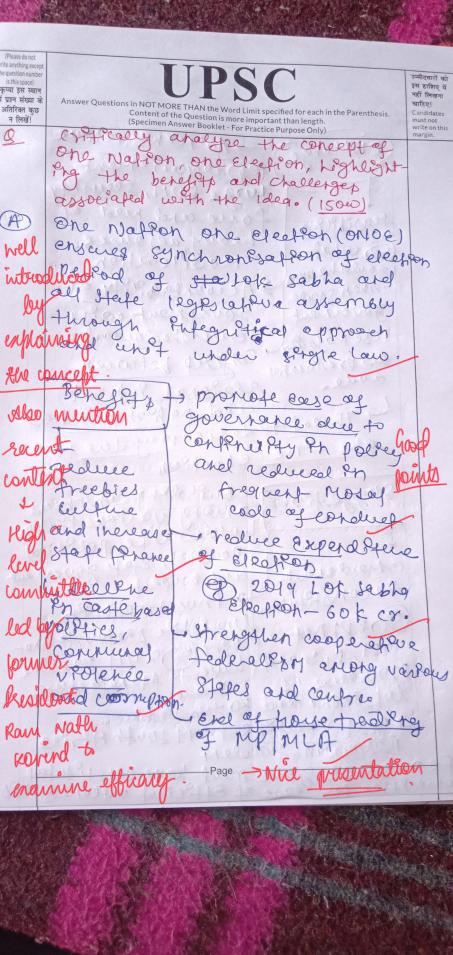 (Please do not
write anything except
the question number
in this space)
कृपया इस स्थान
में प्रश्न संख्या के
अतिरिक्त कुछ
न लिखें।
UPSC
Answer Questions in NOT MORE THAN the Word Limit specified for each in the Parenthesis.
Content of the Question is more important than length.
(Specimen Answer Booklet - For Practice Purpose Only)
उम्मीदवारों को
इस हाशिए में
नहीं लिखना
चाहिए।
Candidates
must not
write on this
margin.
Q
Critically analyze the concept of
One Nation, one Election, highlight-
ing the benefits and challenges
associated with the idea. (150w)
A
One Nation one election (ONOE)
ensures synchronisation of election
Period of Lok Sabha and
all state legislative assembly
through approach
and unit under single law.
well
introduced
by
explaining
the concept.
Also mention
recent
context
High
level
committee
led by
former
President
Ram Nath
Kovind to
examine efficacy.
Benefits
→ promote ease of
governance due to
continuity in policy
and reduced in
frequent Model
code of conduct
→ reduce expenditure
of election
eg 2019 Lok Sabha
Election - 60k cr.
→ strengthen cooperative
federalism among various
states and centre
→ end of horse trading
of MP/MLA
Good
points
reduce
freebies
culture
and increase
state finance
decline
in caste based
politics,
communal
violence
and corruption.
Page
→ Nice presentation